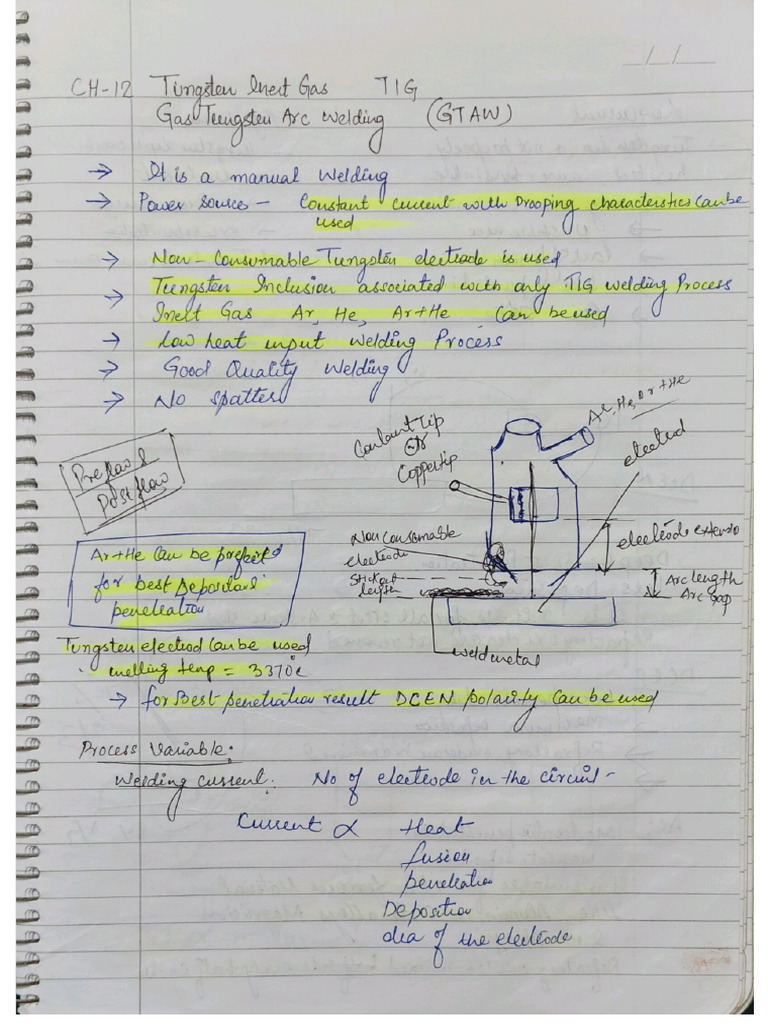 CH-12 Tungsten Inert Gas TIG
Gas Tungsten Arc Welding (GTAW)
→ It is a manual Welding
→ Power Source - Constant current with Drooping characteristics can be
used
→ Non-Consumable Tungsten electrode is used
→ Tungsten Inclusion associated with only TIG welding Process
Inert Gas Ar, He, Ar+He Can be used
→ Low heat input Welding Process
→ Good Quality Welding
→ No spatter
Preflow &
Postflow
Coolant Tip
or
Coppertip
Ar, He, Ar+He
electrod
Non Consumable
electrode
Stickout
length
electrode
Arc length
Arc gap
weld metal
Ar+He Can be
for best
penetration
Tungsten electrod can be used
melting temp = 3370°c
→ for Best penetration result DCEN polarity Can be used
Process Variable:
Welding current: No of electrode in the circuit -
Current ∝ Heat
fusion
penetration
Deposition
dia of the electrode